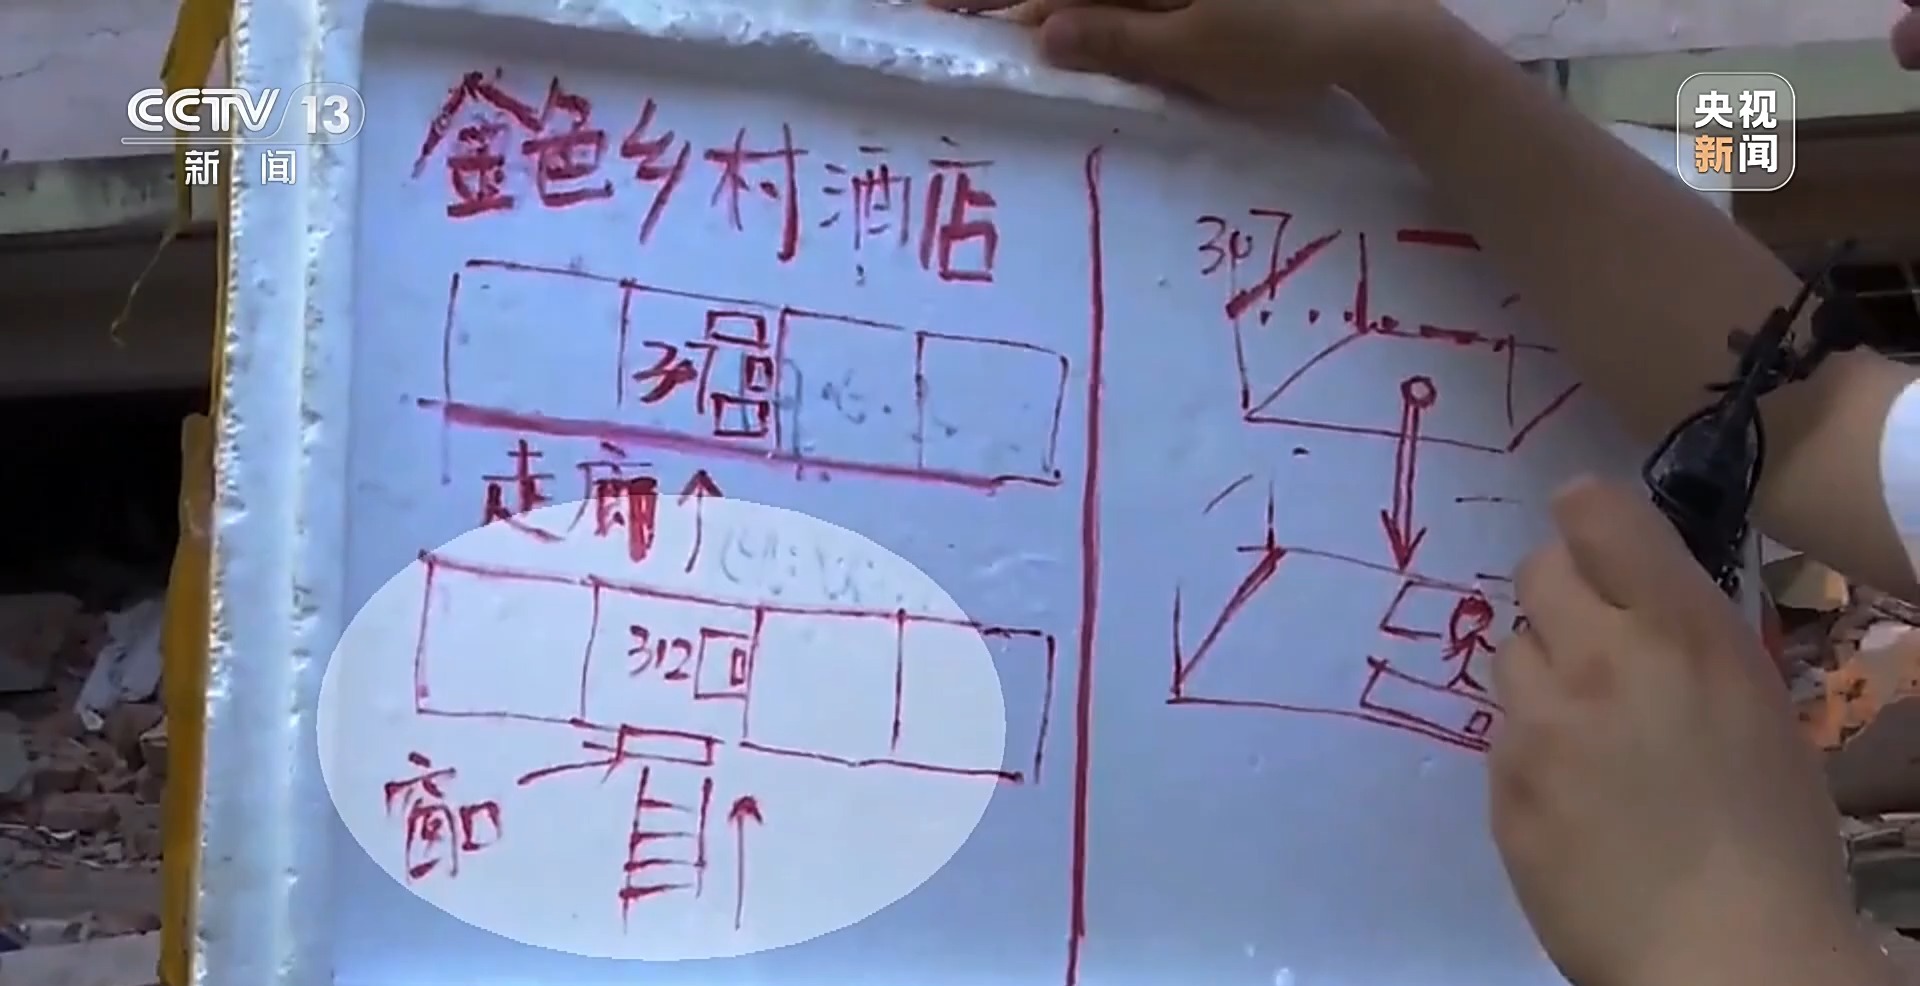 CCTV 13
新闻
央视
新闻
金色乡村酒店
307
走廊
312
窗口
307